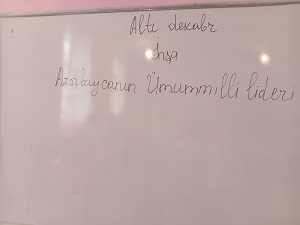 Altı dekabr
İnşa
Azərbaycanın Ümummilli lideri